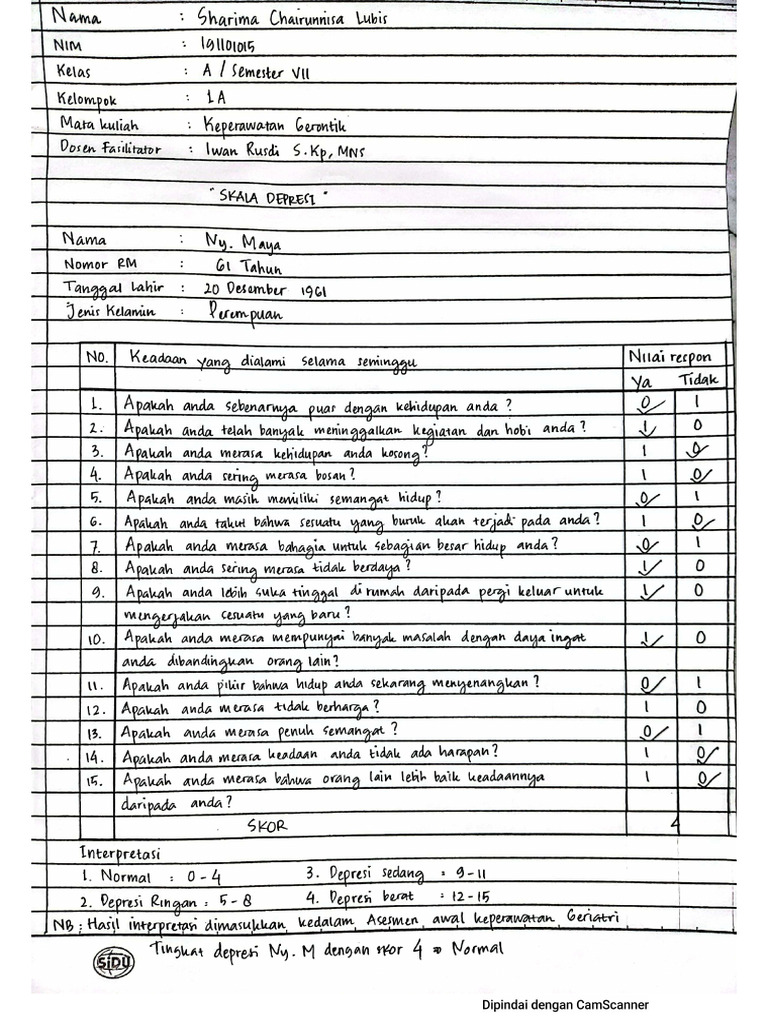 Nama : Sharima Chairunnisa Lubis
NIM : 191101015
Kelas : A / Semester VII
Kelompok : 1A
Mata kuliah : Keperawatan Gerontik
Dosen Fasilitator : Iwan Rusdi S.Kp, MNS
"SKALA DEPRESI"
Nama : Ny. Maya
Nomor RM : 61 Tahun
Tanggal Lahir : 20 Desember 1961
Jenis Kelamin : Perempuan
NO. Keadaan yang dialami selama seminggu Nilai respon
Ya Tidak
1. Apakah anda sebenarnya puas dengan kehidupan anda? 0✓ 1
2. Apakah anda telah banyak meninggalkan kegiatan dan hobi anda? 1✓ 0
3. Apakah anda merasa kehidupan anda kosong? 1 0✓
4. Apakah anda sering merasa bosan? 1 0✓
5. Apakah anda masih memiliki semangat hidup? 0✓ 1
6. Apakah anda takut bahwa sesuatu yang buruk akan terjadi pada anda? 1 0✓
7. Apakah anda merasa bahagia untuk sebagian besar hidup anda? 0✓ 1
8. Apakah anda sering merasa tidak berdaya? 1✓ 0
9. Apakah anda lebih suka tinggal di rumah daripada pergi keluar untuk 1✓ 0
mengerjakan sesuatu yang baru?
10. Apakah anda merasa mempunyai banyak masalah dengan daya ingat 1✓ 0
anda dibandingkan orang lain?
11. Apakah anda pikir bahwa hidup anda sekarang menyenangkan? 0✓ 1
12. Apakah anda merasa tidak berharga? 1 0
13. Apakah anda merasa penuh semangat? 0✓ 1
14. Apakah anda merasa keadaan anda tidak ada harapan? 1 0✓
15. Apakah anda merasa bahwa orang lain lebih baik keadaannya 1 0✓
daripada anda?
SKOR 4
Interpretasi
1. Normal : 0-4 3. Depresi sedang : 9-11
2. Depresi Ringan : 5-8 4. Depresi berat : 12-15
NB : Hasil interpretasi dimasukkan kedalam Asesmen awal keperawatan Geriatri
SiDU Tingkat depresi Ny. M dengan skor 4 ⇒ Normal
Dipindai dengan CamScanner